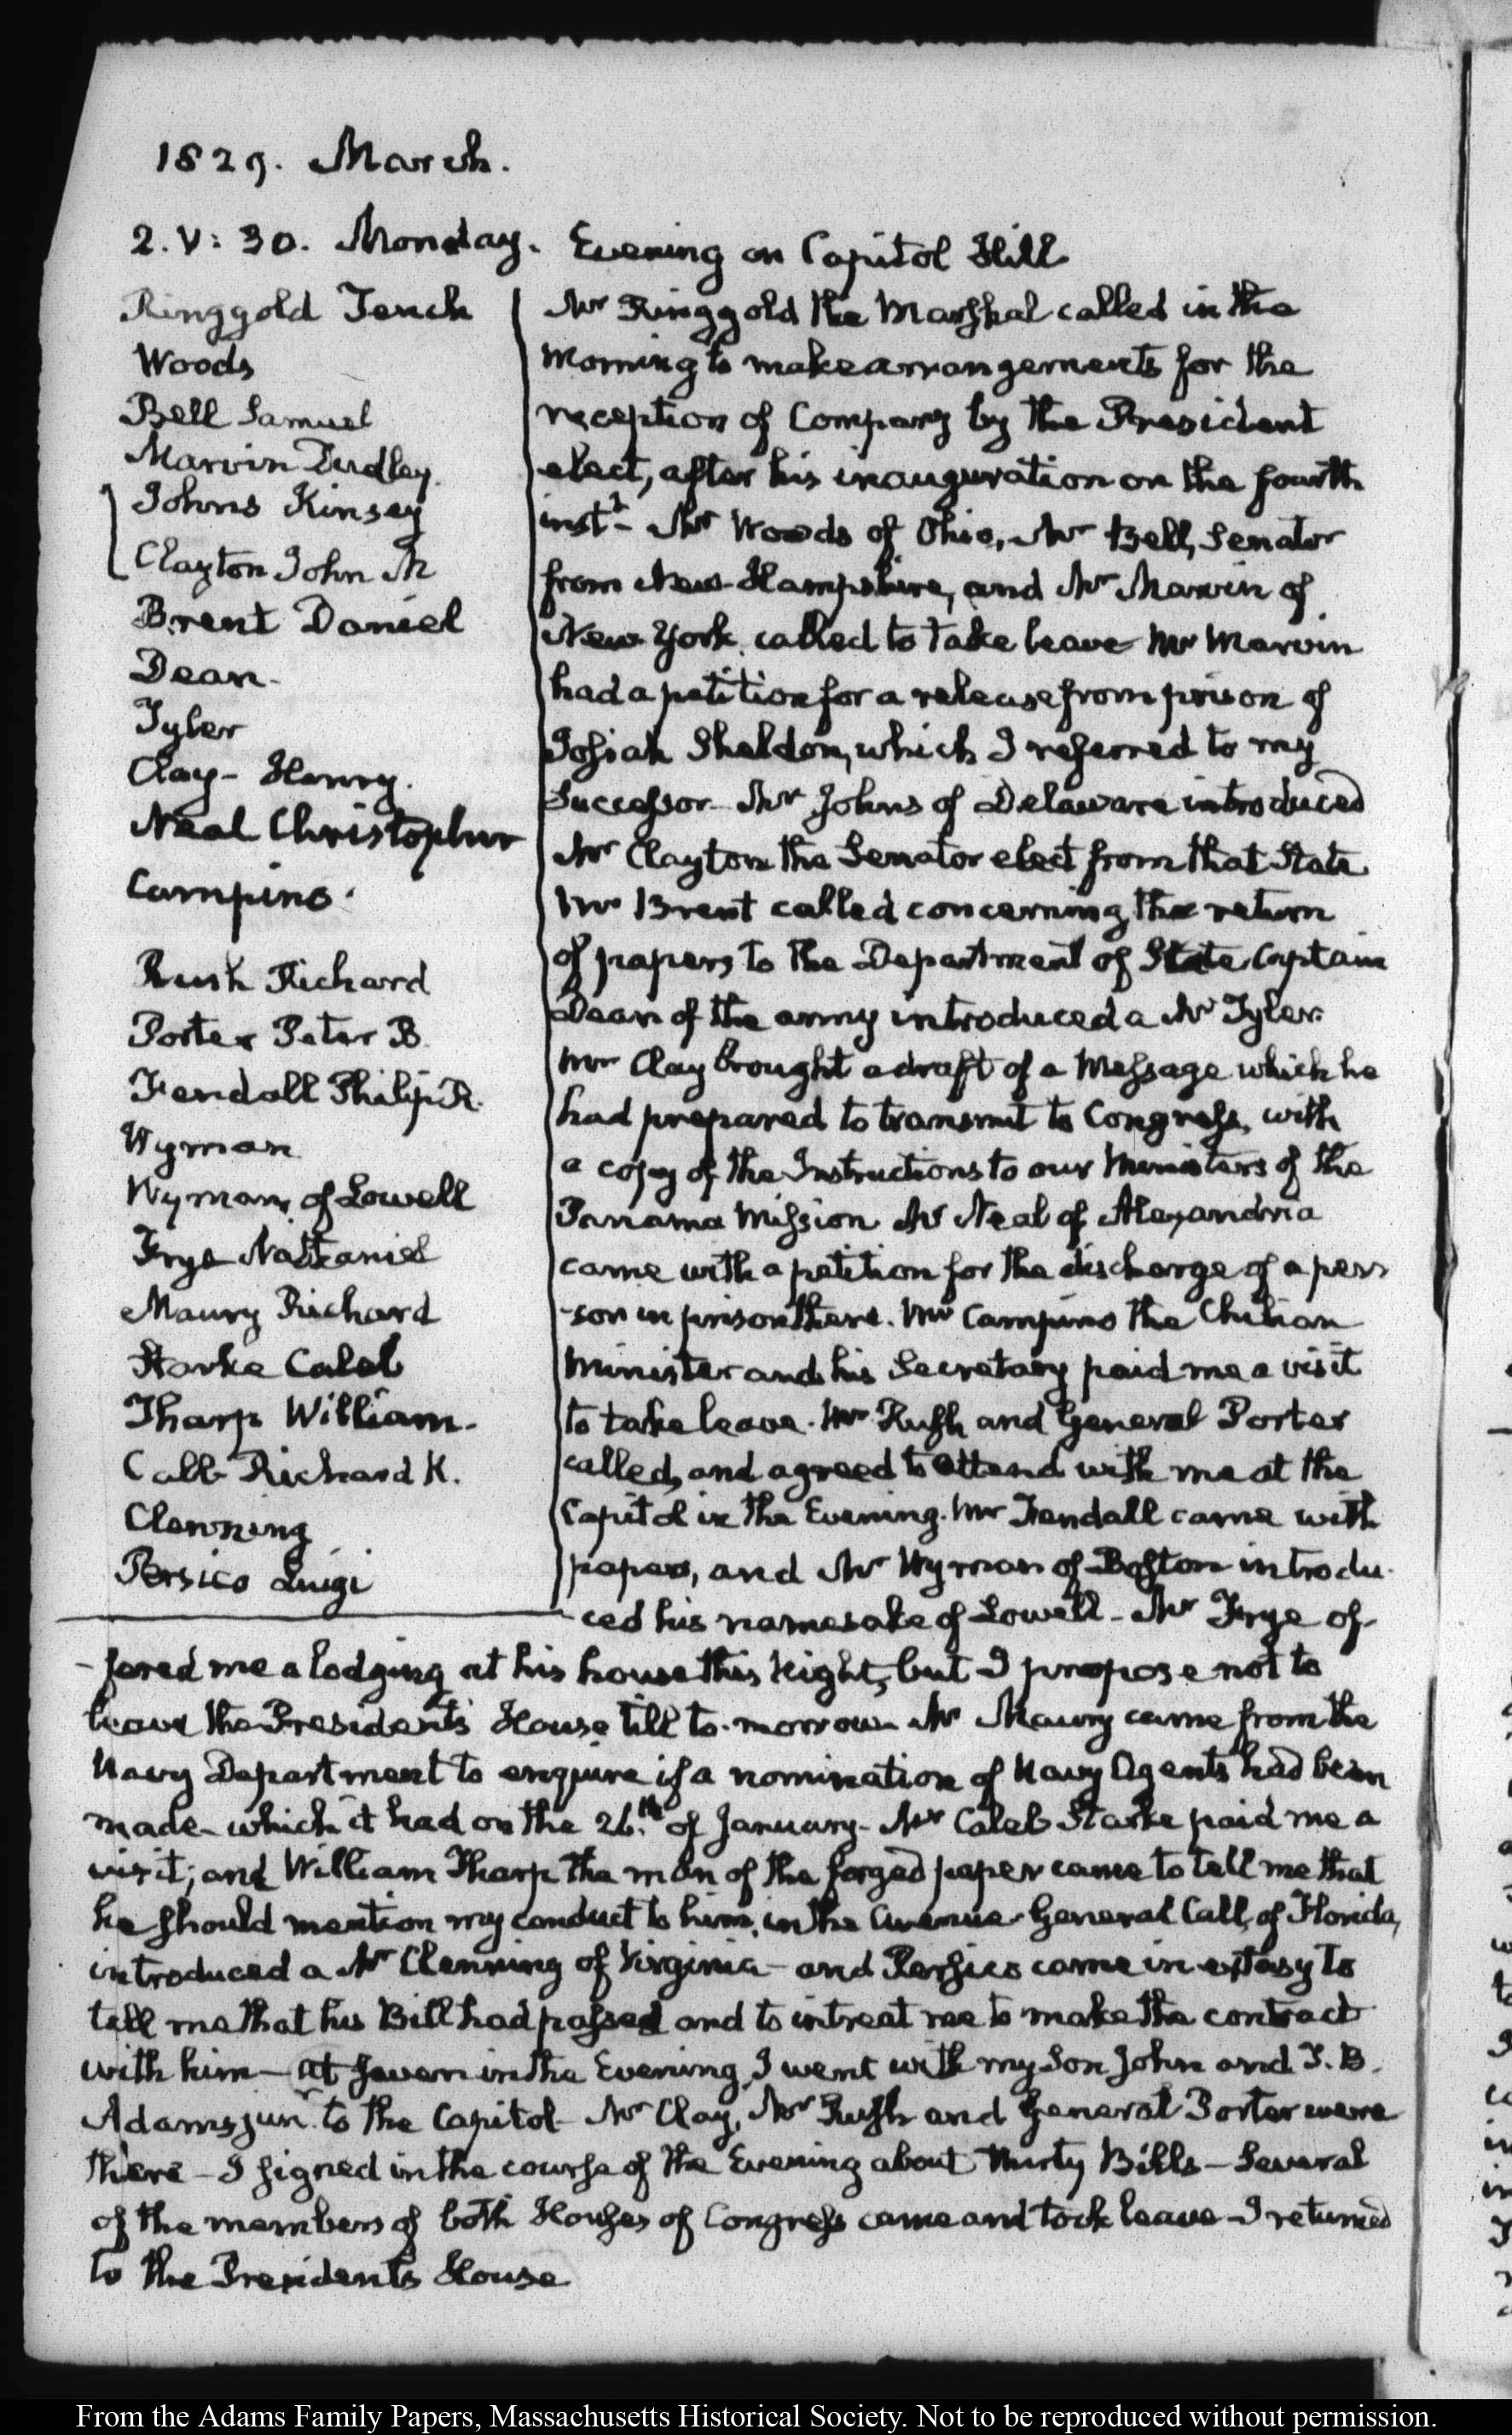 1829. March.
2. V: 30. Monday. Evening on Capitol Hill
Ringgold Tench
Woods
Bell Samuel
Marvin Dudley.
Johns Kinsey
Clayton John M
Brent Daniel
Dean.
Tyler
Clay - Henry.
Neal Christopher
Campino.
Rush Richard
Porter Peter B.
Fendall Philip R.
Wyman
Wyman, of Lowell
Frye Nathaniel
Maury Richard
Starke Caleb
Tharp William.
Call Richard K.
Clenning
Persico Luigi
Mr Ringgold the Marshal called in the
morning to make arrangements for the
reception of Company by the President
elect, after his inauguration on the fourth
instt - Mr Woods of Ohio, Mr Bell, Senator
from New-Hampshire, and Mr Marvin of
New-York, called to take leave Mr Marvin
had a petition for a release from prison of
Josiah Sheldon, which I referred to my
Successor - Mr Johns of Delaware introduced
Mr Clayton the Senator elect from that State
Mr Brent called concerning the return
of papers to the Department of State, Captain
Dean of the army introduced a Mr Tyler.
Mr Clay brought a draft of a Message which he
had prepared to transmit to Congress, with
a copy of the Instructions to our Ministers of the
Panama Mission Mr Neal of Alexandria
came with a petition for the discharge of a per
-son in prison there. Mr Campino the Chilian
Minister and his Secretary paid me a visit
to take leave. Mr Rush and General Porter
called, and agreed to attend with me at the
Capitol in the Evening. Mr Fendall came with
papers, and Mr Wyman of Boston introdu-
ced his namesake of Lowell - Mr Frye of-
-fered me a lodging at his house this Night, but I propose not to
leave the President's House till to-morrow Mr Maury came from the
Navy Department to enquire if a nomination of Navy Agents had been
made - which it had on the 26.th of January - Mr Caleb Starke paid me a
visit; and William Tharp the man of the forged paper came to tell me that
he should mention my conduct to him, in the Avenue - General Call, of Florida,
introduced a Mr Clenning of Virginia - and Persico came in extasy to
tell me that his Bill had passed and to intreat me to make the contract
with him - At seven in the Evening, I went with my Son John and T. B.
Adams junr to the Capitol - Mr Clay, Mr Rush and General Porter were
there - I signed in the course of the Evening about thirty Bills - Several
of the members of both Houses of Congress came and took leave - I returned
to the Presidents House
From the Adams Family Papers, Massachusetts Historical Society. Not to be reproduced without permission.